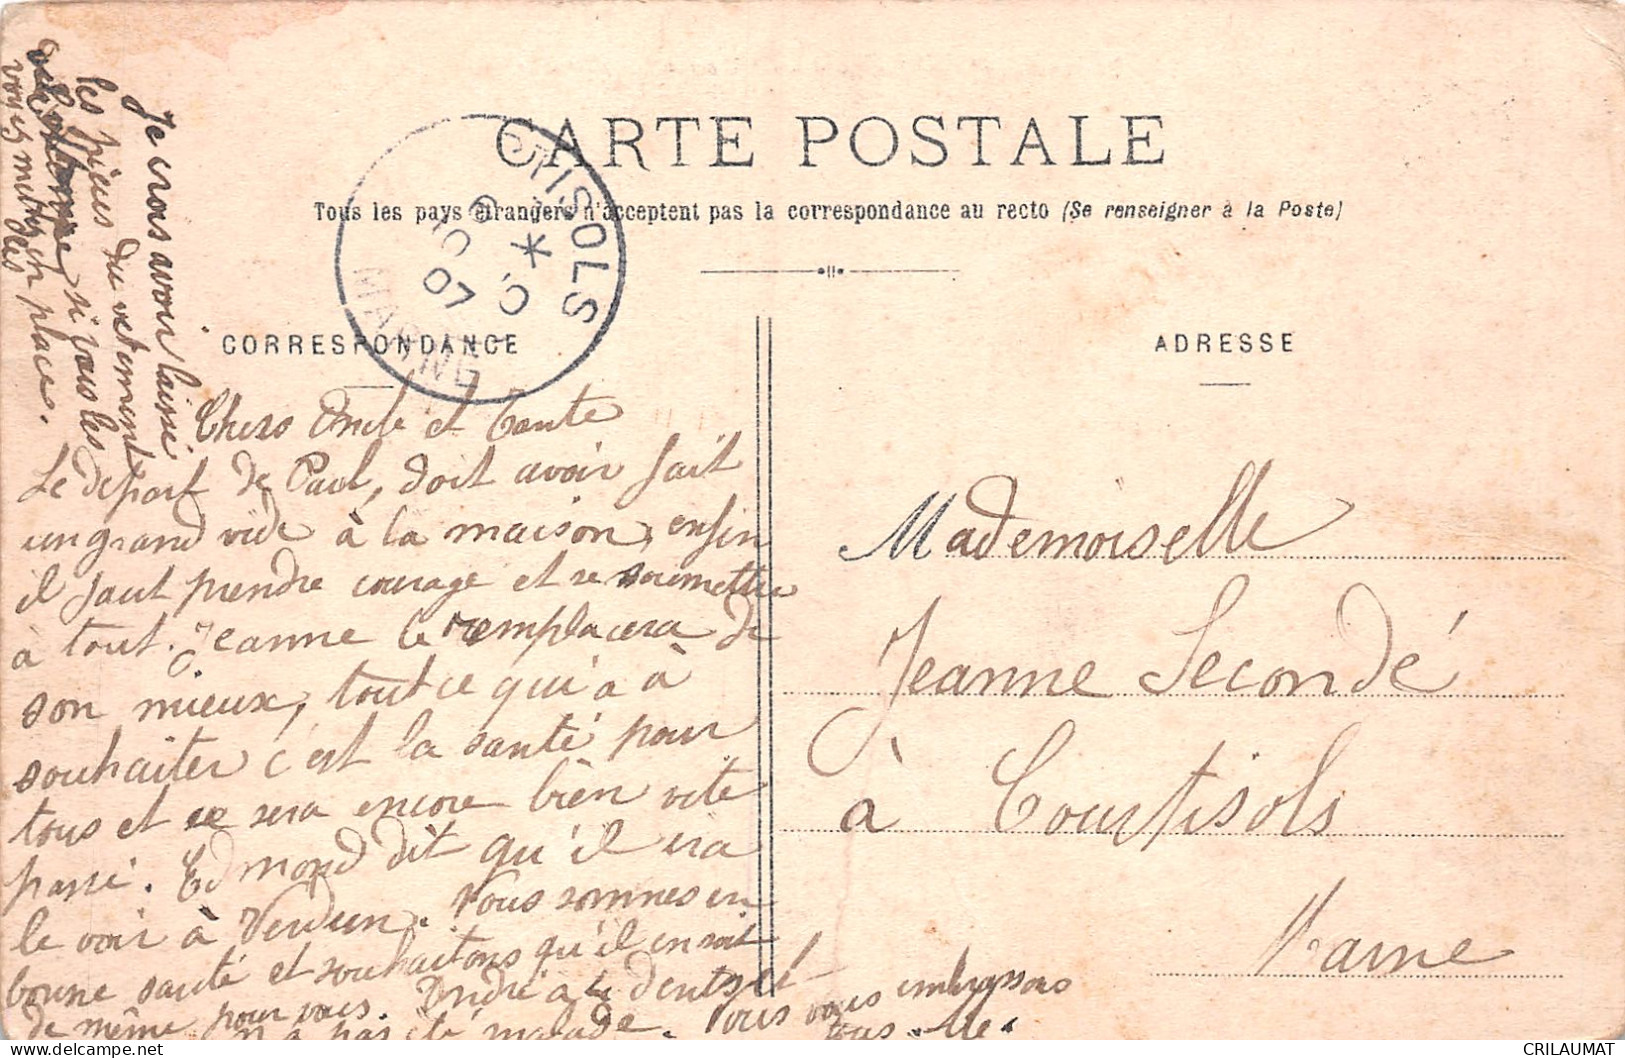 CARTE POSTALE
Tous les pays étrangers n'acceptent pas la correspondance au recto (Se renseigner à la Poste)
CORRESPONDANCE
ADRESSE
COURTISOLS
10 07
MARNE
Chers Oncle et Tante
Le départ de Paul, doit avoir fait
un grand vide à la maison, enfin
il faut prendre courage et se soumettre
à tout. Jeanne le remplacera de
son mieux, tout ce qu'à à
souhaiter c'est la santé pour
tous et ce sera encore bien vite
passé. Edmond dit qu'il ira
le voir à Verdun. Nous sommes en
bonne santé et souhaitons qu'il en soit
de même pour vous. André à 4 dents,
n'a pas été malade. Nous vous embrassons
tous. Me.
Je crois avoir laissé
les pièces du vetement
si vous les
vouez mettez en
des places.
Mademoiselle
Jeanne Secondé
à Courtisols
Marne
CRILAUMAT